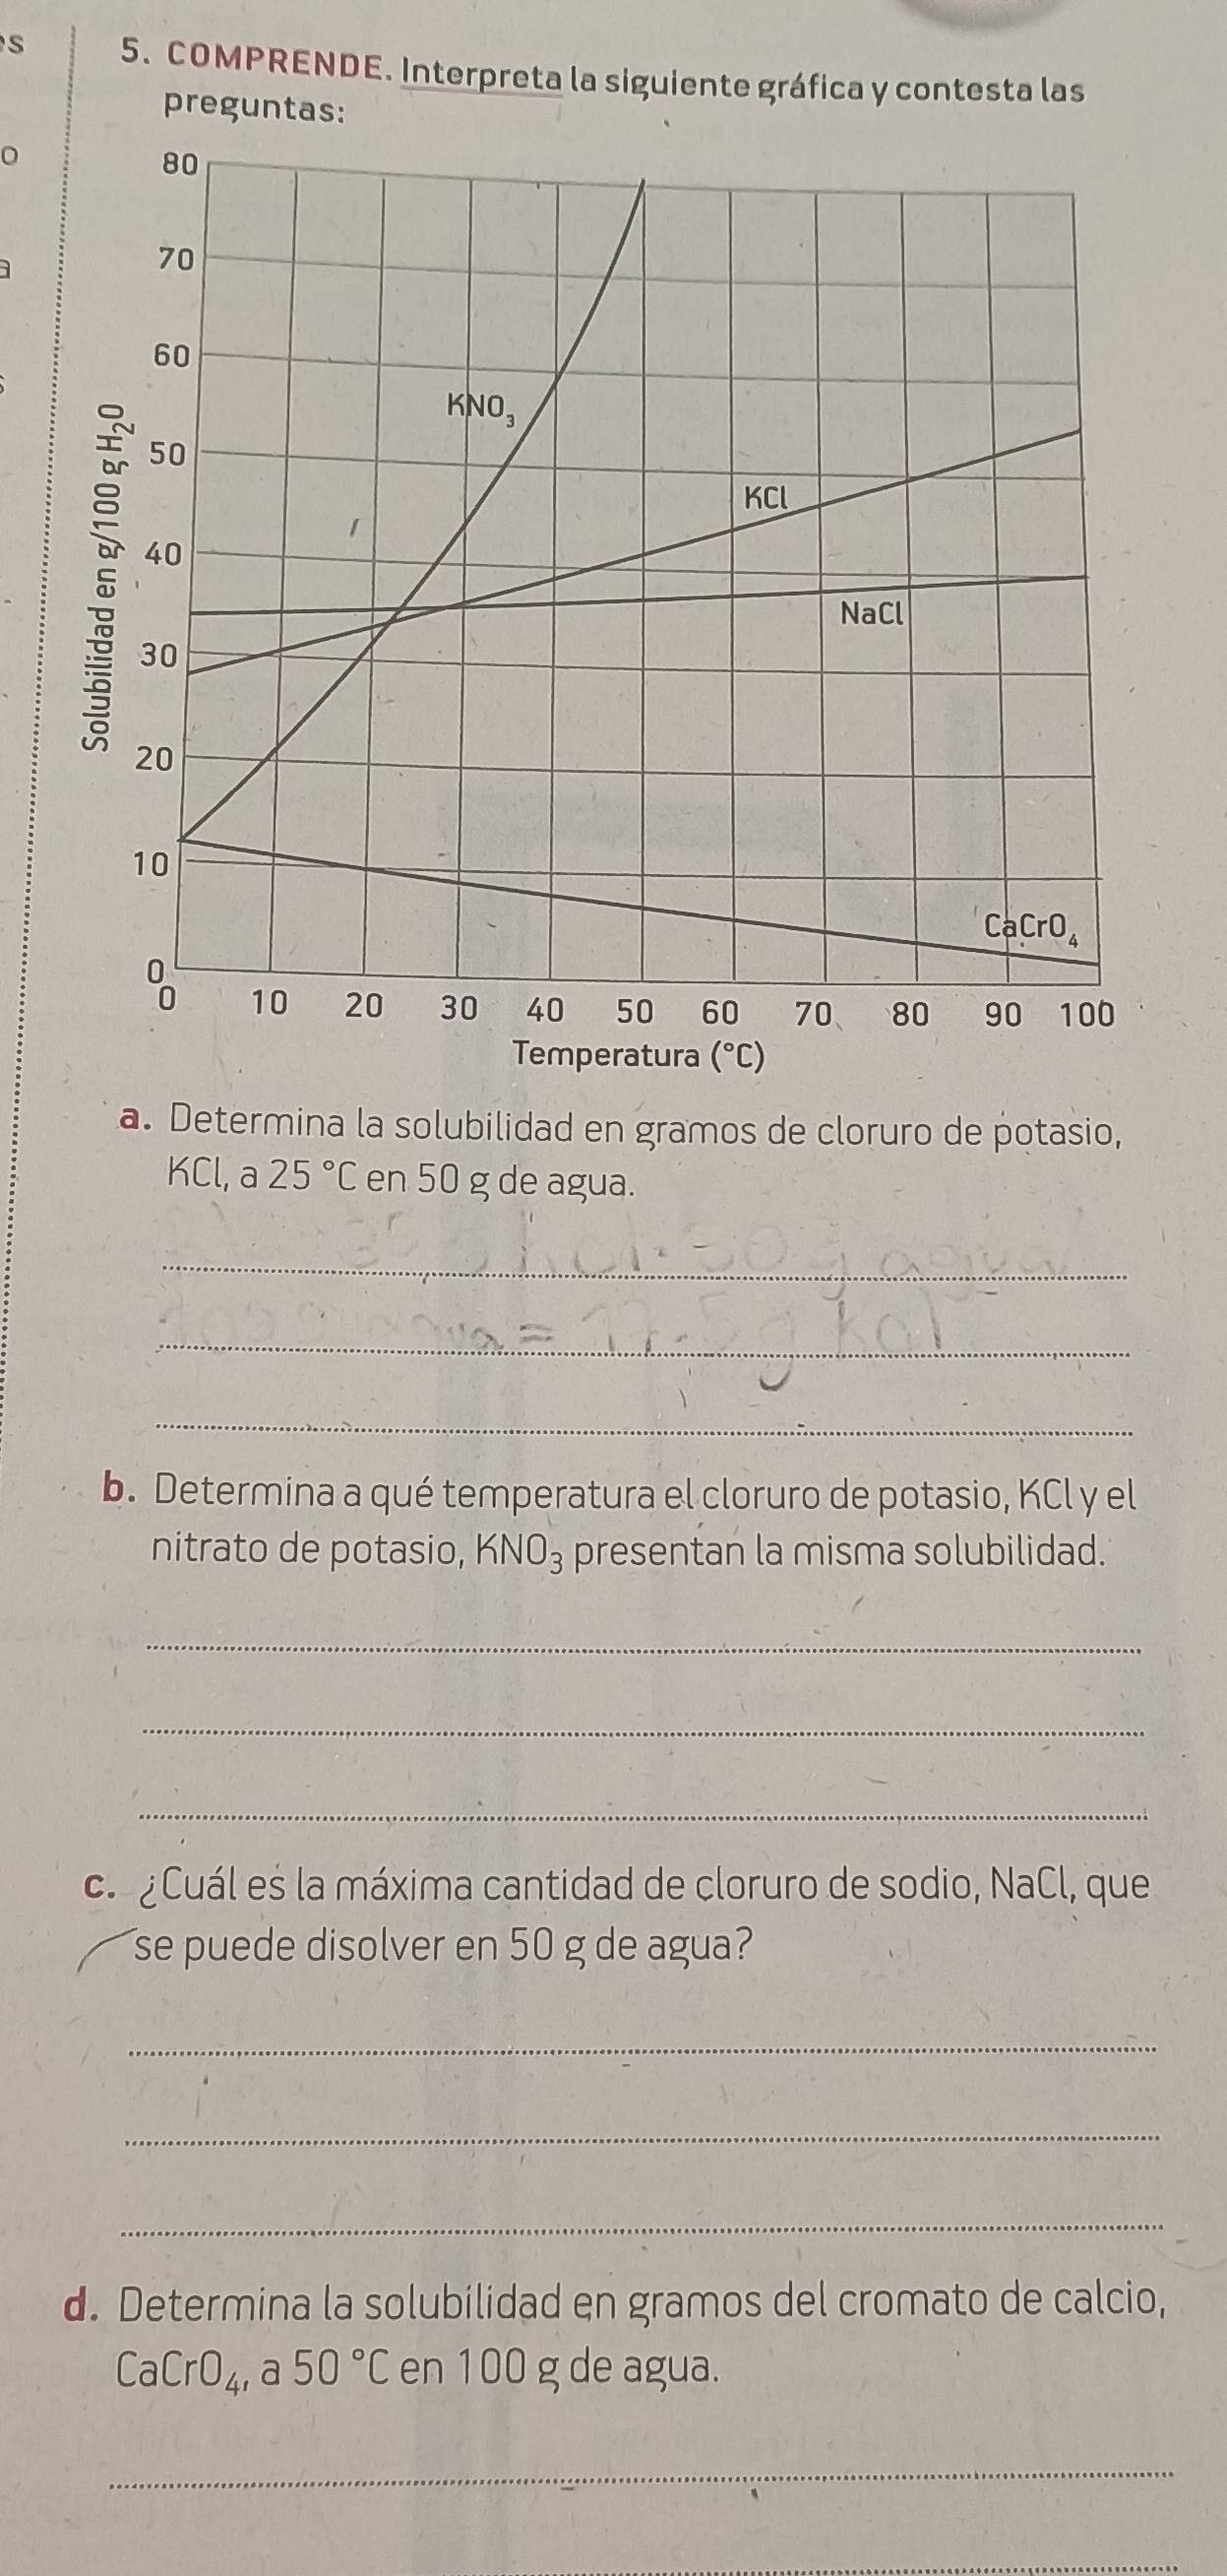 5. COMPRENDE. Interpreta la siguiente gráfica y contesta las
preguntas:
80
70
60
50
40
30
20
10
0
Solubilidad en g/100 g H₂O
KNO₃
KCl
NaCl
CaCrO₄
0 10 20 30 40 50 60 70 80 90 100
Temperatura (°C)
a. Determina la solubilidad en gramos de cloruro de potasio,
KCl, a 25 °C en 50 g de agua.
b. Determina a qué temperatura el cloruro de potasio, KCl y el
nitrato de potasio, KNO₃ presentan la misma solubilidad.
c. ¿Cuál es la máxima cantidad de cloruro de sodio, NaCl, que
se puede disolver en 50 g de agua?
d. Determina la solubilidad en gramos del cromato de calcio,
CaCrO₄, a 50 °C en 100 g de agua.